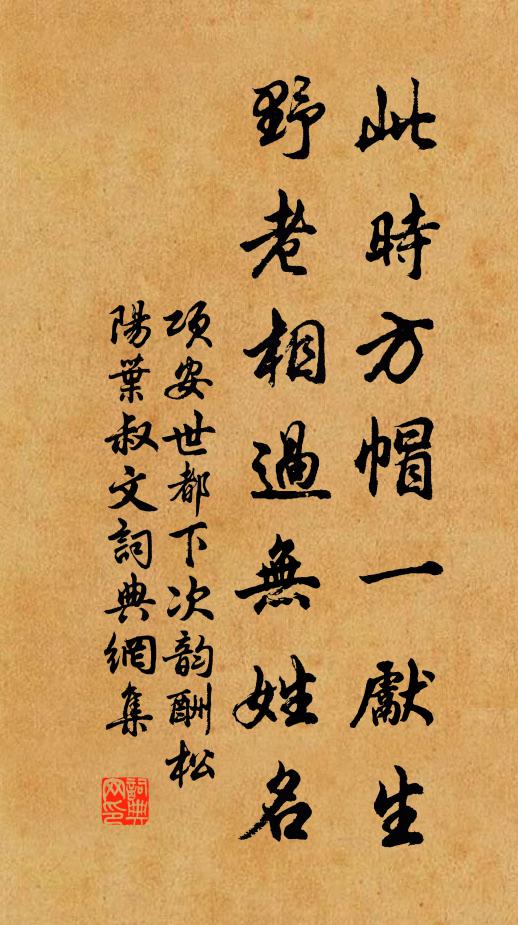 此時方帽一獻生
野老相過無姓名
項安世都下次韵酬松
陽葉叔文詞典網集
詞典
网印